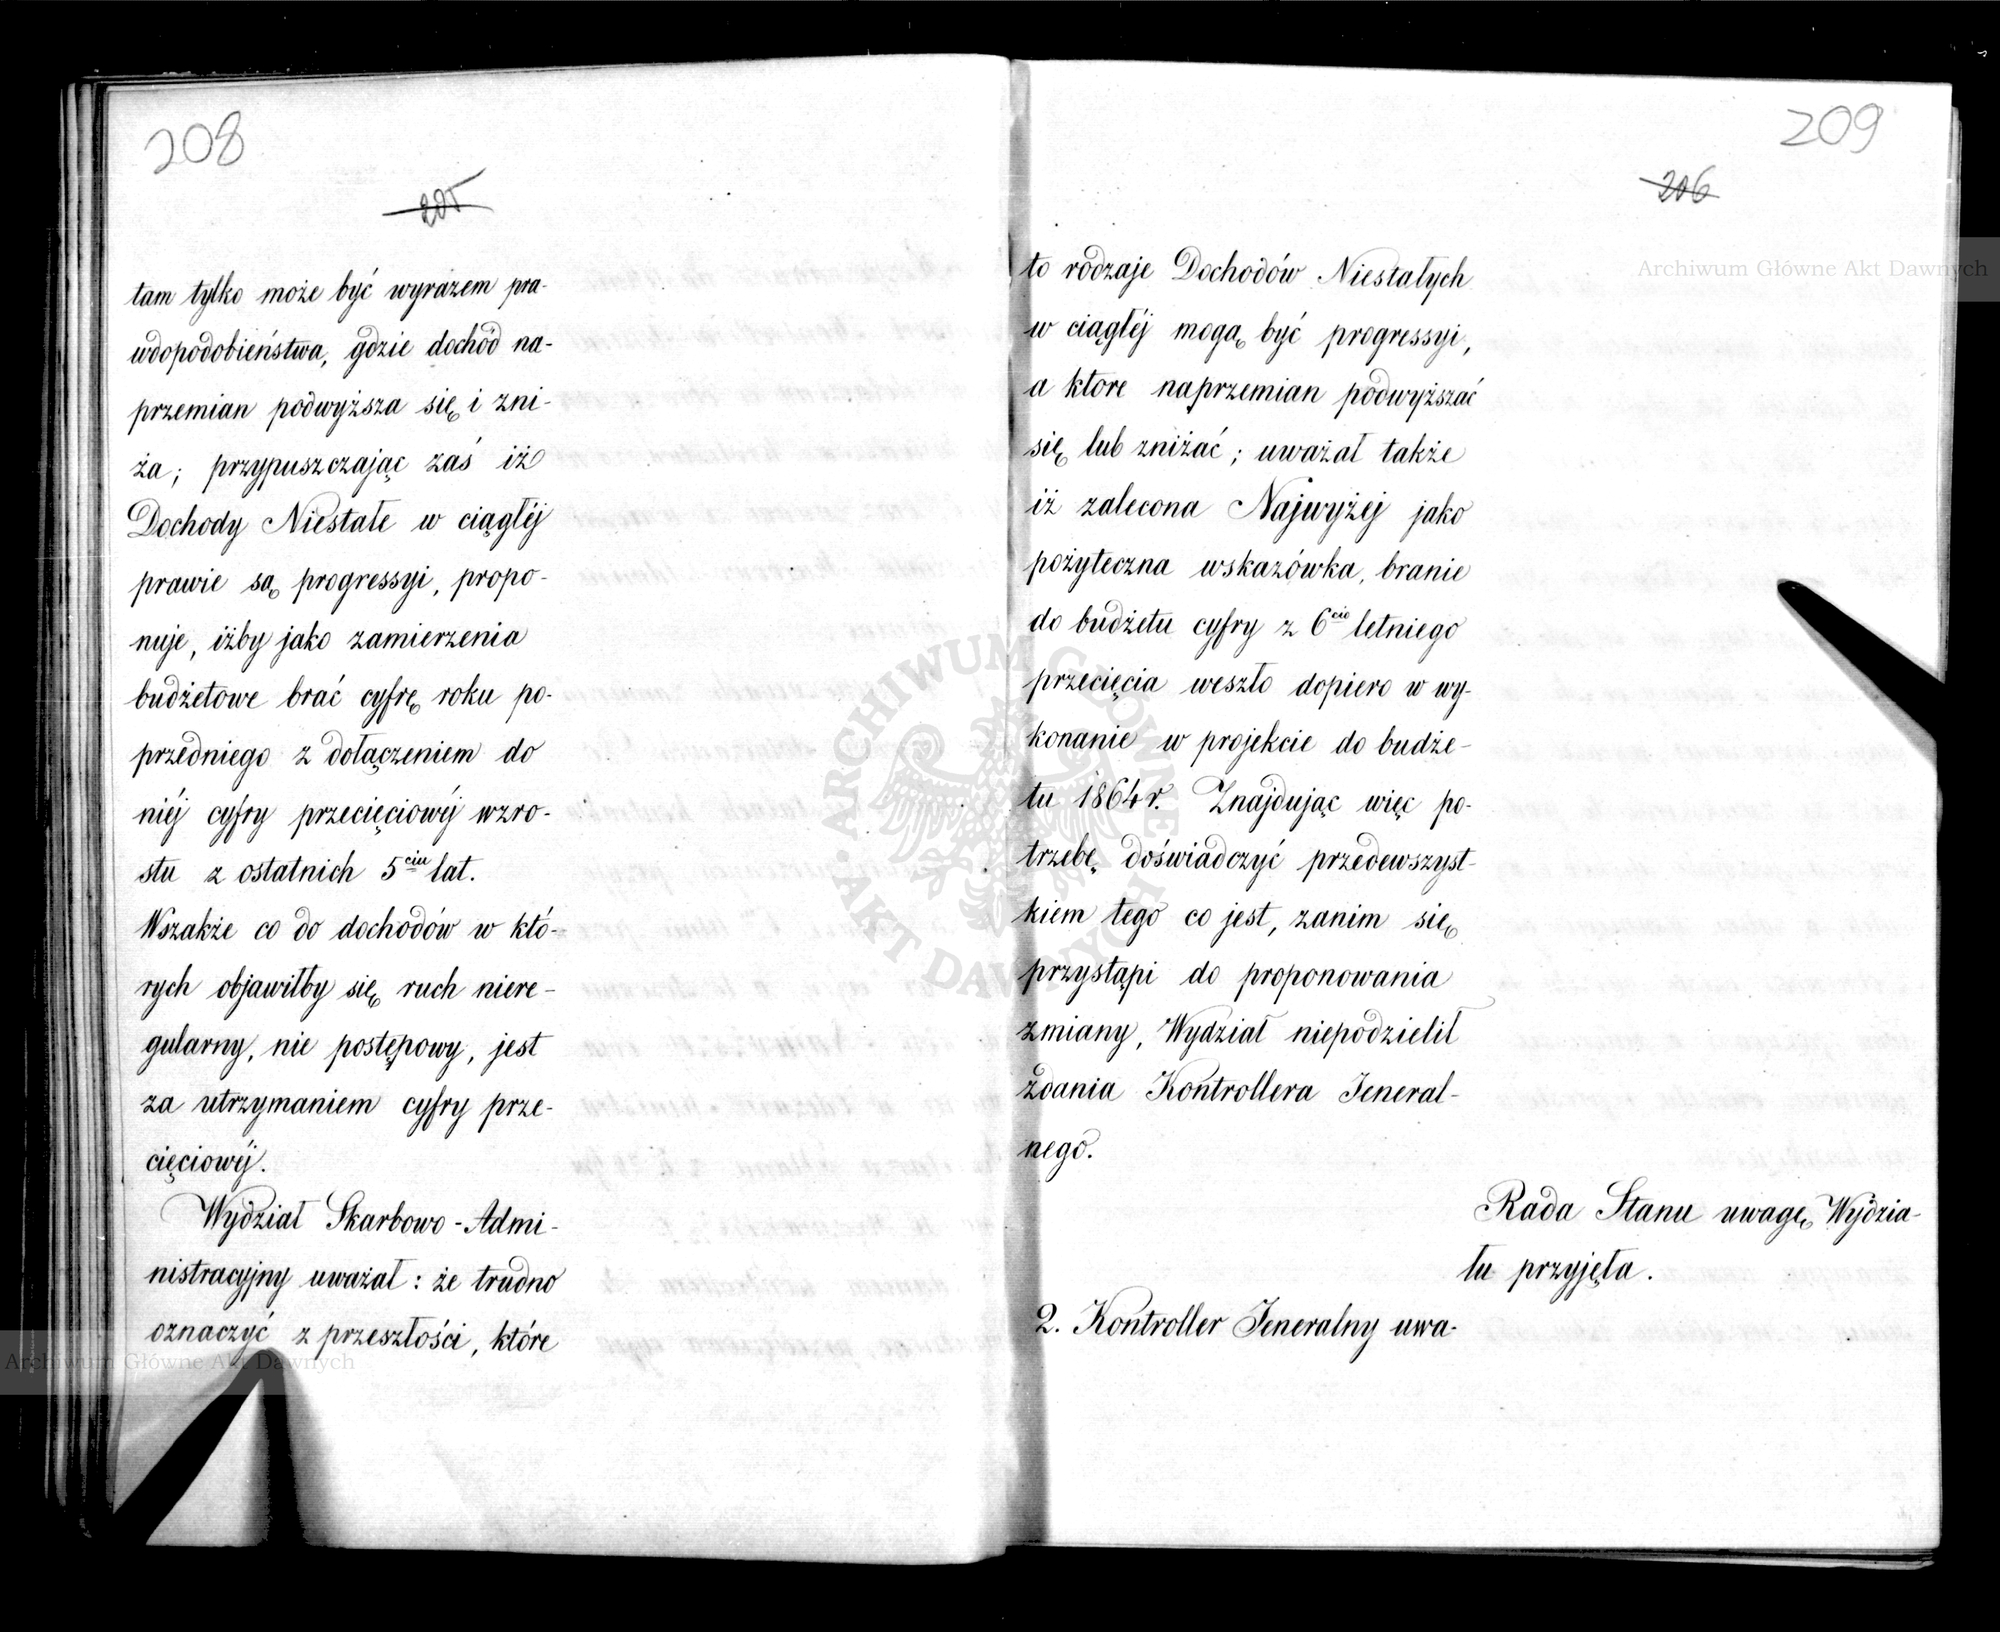 208
205
tam tylko może być wyrazem pra-
wdopodobieństwa, gdzie dochód na-
przemian podwyższa się i zni-
ża; przypuszczając zaś iż
Dochody Niestałe w ciągłéj
prawie są progressyi, propo-
nuje, iżby jako zamierzenia
budżetowe brać cyfrę roku po-
przedniego z dołączeniem do
niéj cyfry przecięciowéj wzro-
stu z ostatnich 5ciu lat.
Wszakże co do dochodów w któ-
rych objawiłby się ruch niere-
gularny, nie postępowy, jest
za utrzymaniem cyfry prze-
cięciowéj.
Wydział Skarbowo-Admi-
nistracyjny uważał: że trudno
oznaczyć z przeszłości, które
209
206
to rodzaje Dochodów Niestałych
w ciągłéj mogą być progressyi,
a ktore naprzemian podwyższać
się lub zniżać; uważał także
iż zalecona Najwyżej jako
pożyteczna wskazówka, branie
do budżetu cyfry z 6cio letniego
przecięcia weszło dopiero w wy-
konanie w projekcie do budże-
tu 1864 r. Znajdując więc po-
trzebę doświadczyć przedewszyst-
kiem tego co jest, zanim się
przystąpi do proponowania
zmiany, Wydział niepodzielił
zdania Kontrollera Jeneral-
nego.
Rada Stanu uwagę Wydzia-
łu przyjęła.
2. Kontroller Jeneralny uwa-
Archiwum Główne Akt Dawnych
ARCHIWUM GŁÓWNE
AKT DAWNYCH
Archiwum Główne Akt Dawnych